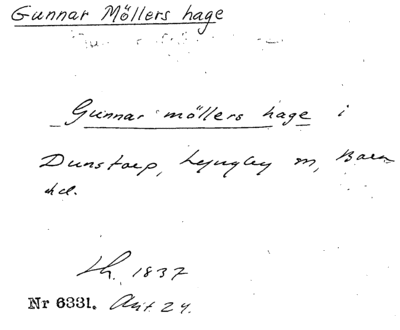 Gunnar Möllers hage
Gunnar möllers hage i
Dunstorp, Lyngby m, Bara
hd.
Lh. 1837
Nr 6331. Akt. 24.